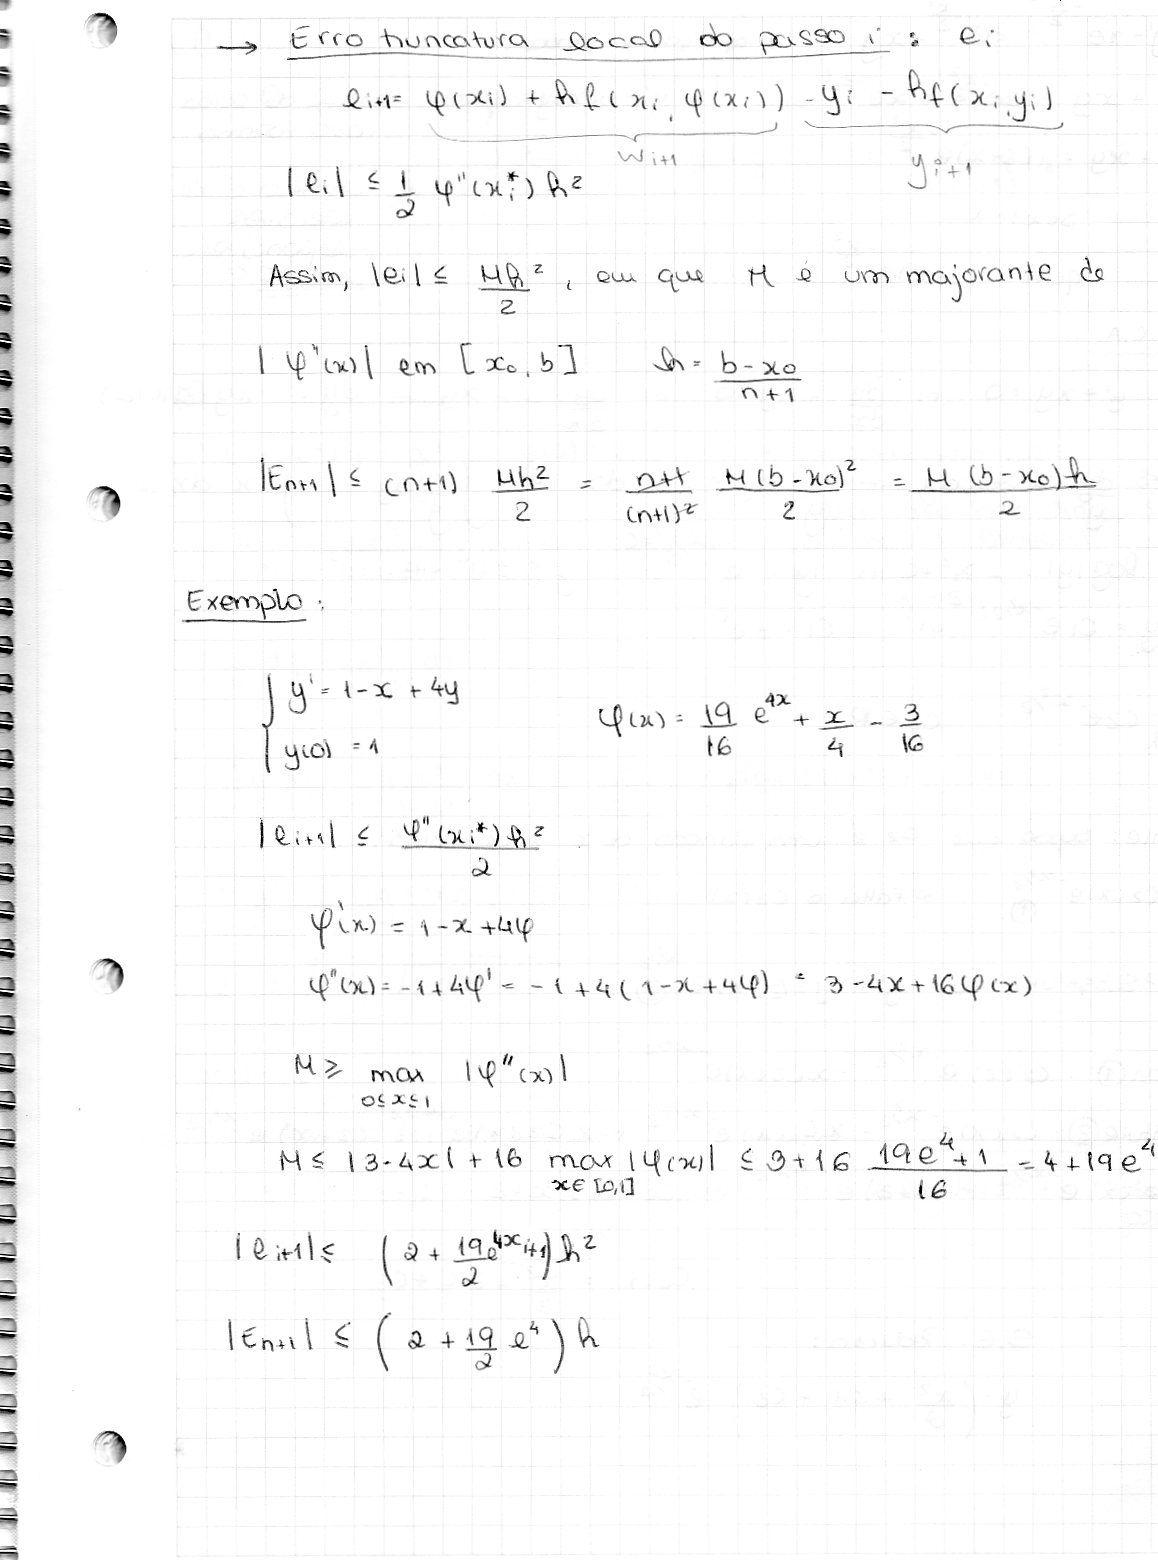 → Erro truncatura local do passo i : e_i
e_{i+1} = φ(x_i) + h f(x_i, φ(x_i)) - y_i - h f(x_i, y_i)
w_{i+1} y_{i+1}
|e_i| ≤ 1/2 φ''(x_i*) h²
Assim, |e_i| ≤ Mh²/2, em que M é um majorante de
|φ''(x)| em [x_0, b] h = (b - x_0)/(n+1)
|E_{n+1}| ≤ (n+1) Mh²/2 = (n+1)/(n+1)² M(b - x_0)²/2 = M(b - x_0)h/2
Exemplo:
{ y' = 1 - x + 4y
{ y(0) = 1 φ(x) = 19/16 e^{4x} + x/4 - 3/16
|e_{i+1}| ≤ φ''(x_i*) h²/2
φ'(x) = 1 - x + 4φ
φ''(x) = -1 + 4φ' = -1 + 4(1 - x + 4φ) = 3 - 4x + 16φ(x)
M ≥ max_{0≤x≤1} |φ''(x)|
M ≤ |3 - 4x| + 16 max_{x∈[0,1]} |φ(x)| ≤ 3 + 16 (19e⁴ + 1)/16 = 4 + 19e⁴
|e_{i+1}| ≤ (2 + 19/2 e^{4x_{i+1}}) h²
|E_{n+1}| ≤ (2 + 19/2 e⁴) h